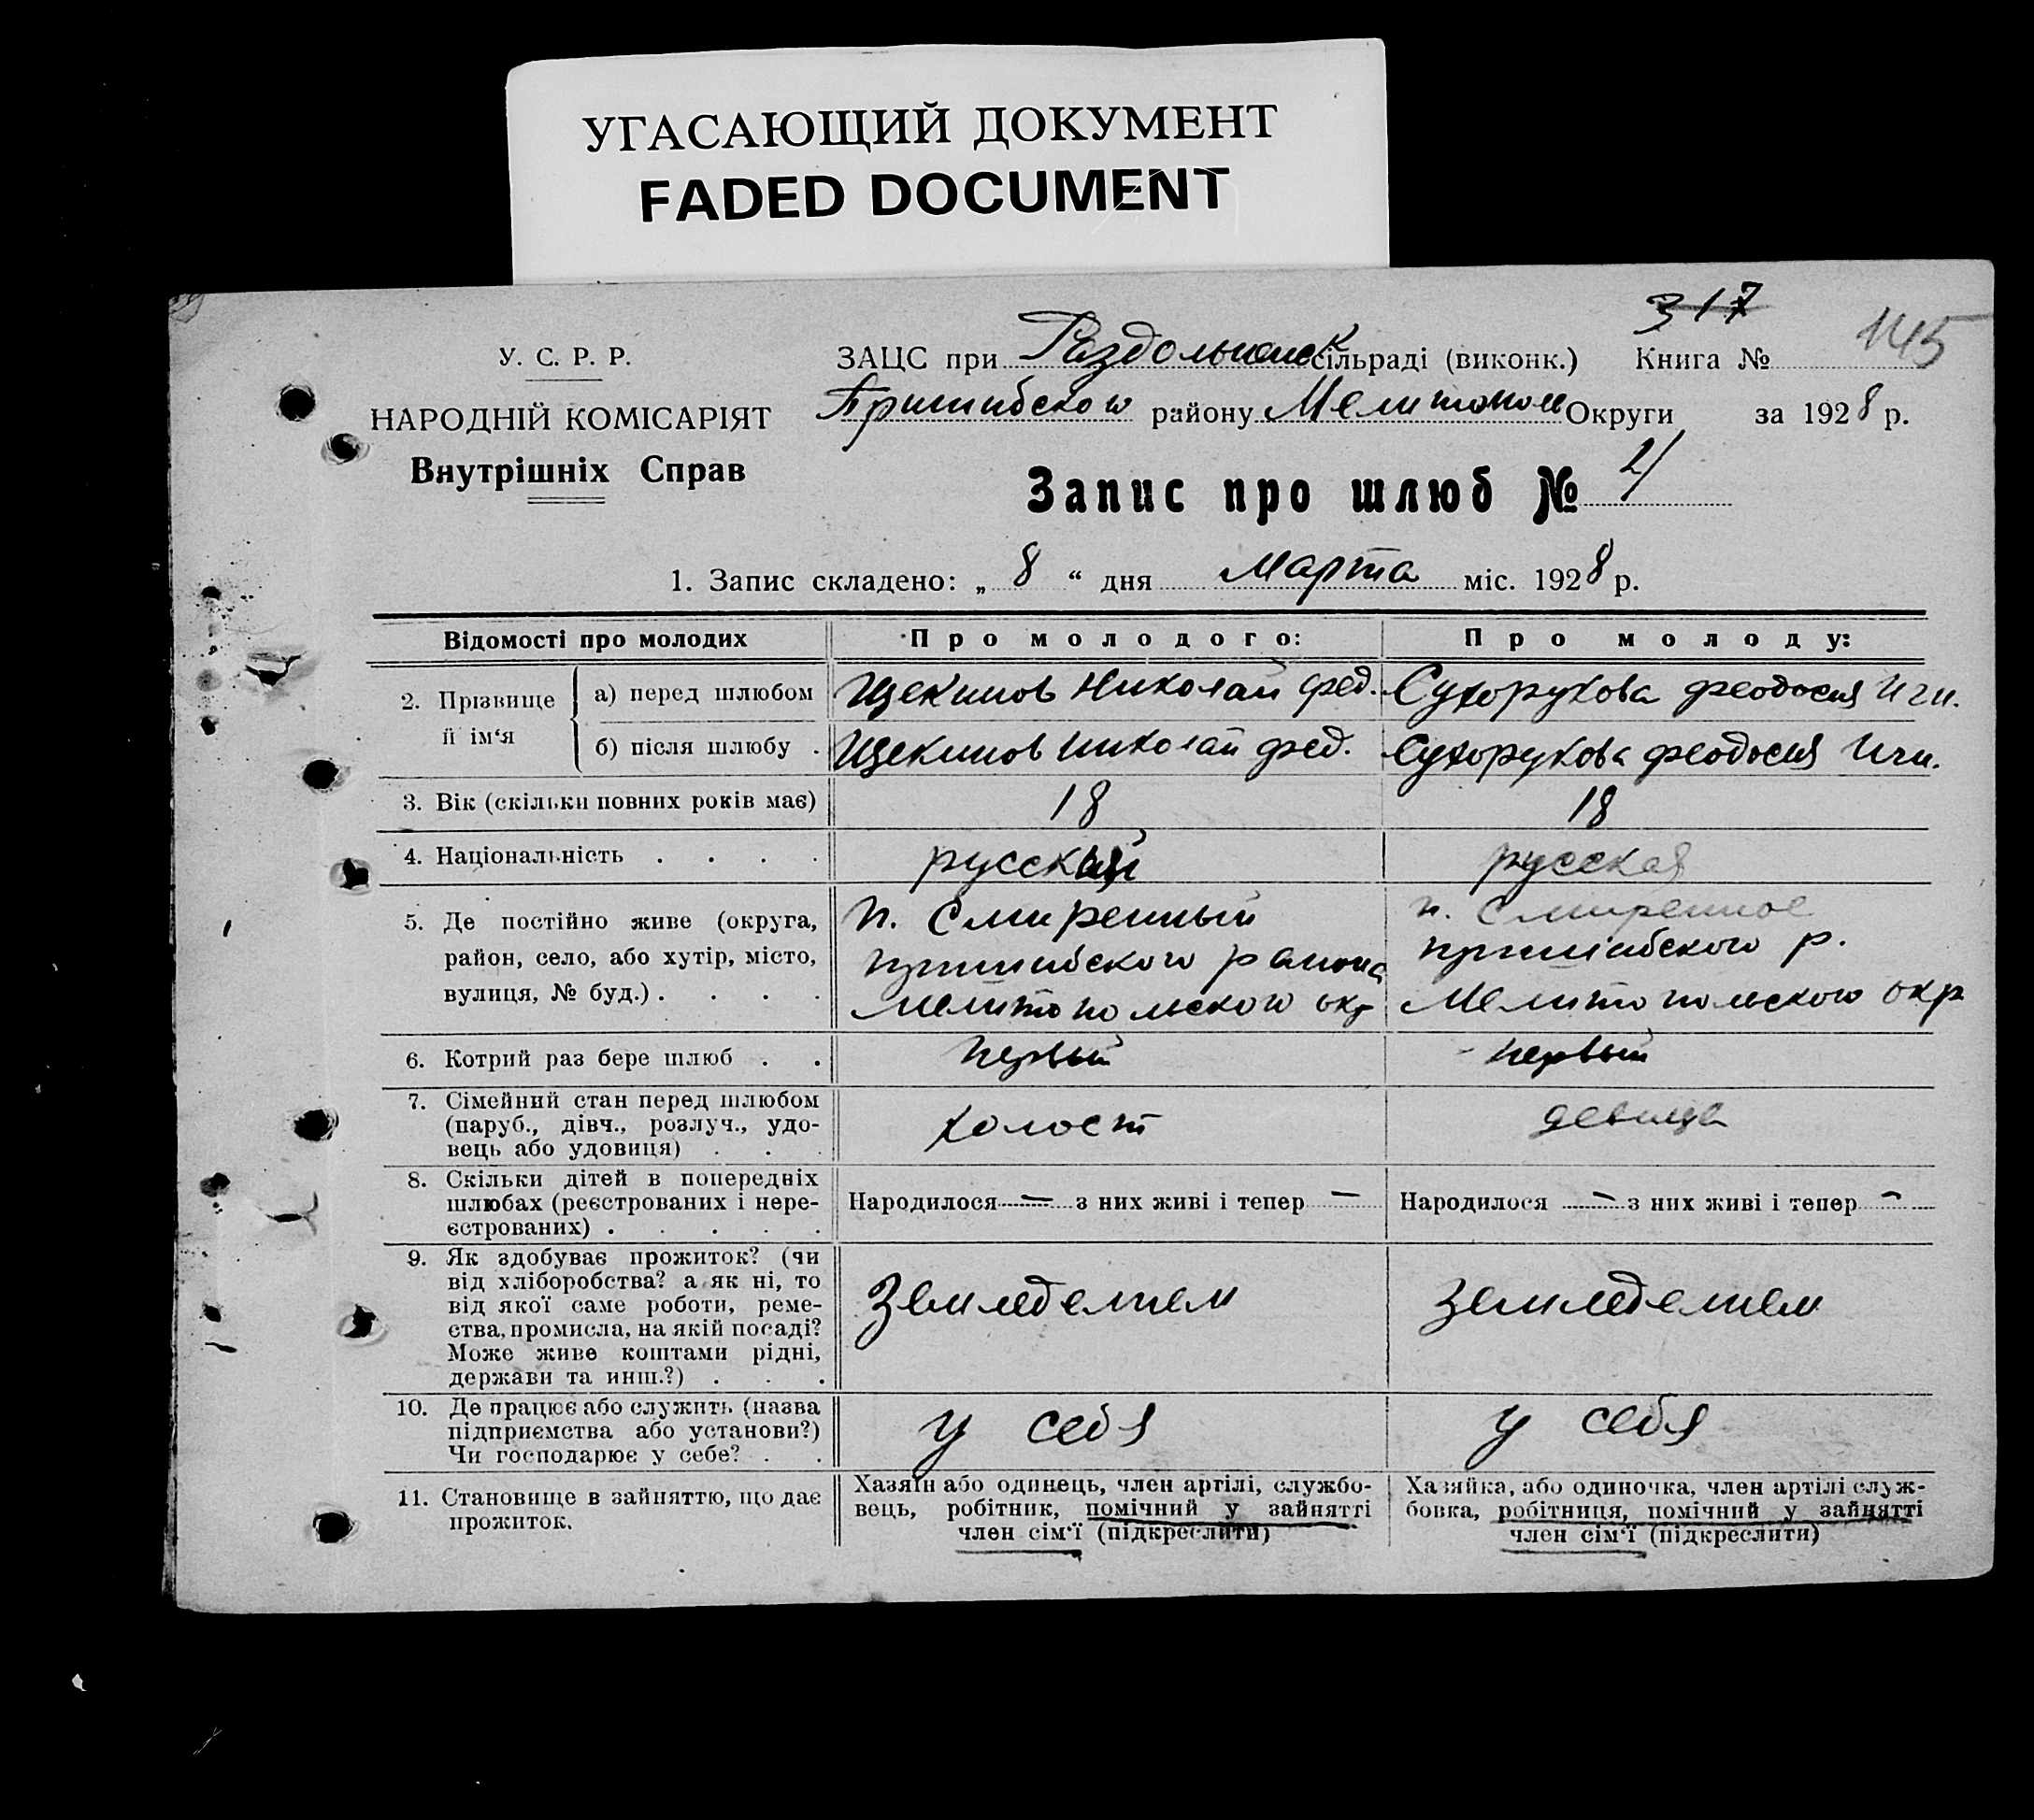 УГАСАЮЩИЙ ДОКУМЕНТ
FADED DOCUMENT
317
145
У. С. Р. Р.
НАРОДНІЙ КОМІСАРІЯТ
Внутрішніх Справ
ЗАЦС при Раздольанск сільраді (виконк.) Книга №
Пришибского району Мелитопол Округи за 1928 р.
Запис про шлюб №
1. Запис складено: „ 8 “ дня марта міс. 1928 р.
Відомості про молодих Про молодого: Про молоду:
2. Прізвище й ім‘я
а) перед шлюбом Щекинов Николай фед. Сухорукова феодосия Игн.
б) після шлюбу . Щекинов николай фед. Сухорукова феодосия Игн.
3. Вік (скільки повних років має) 18 18
4. Національність . . . . русский русская
5. Де постійно живе (округа,
район, село, або хутір, місто,
вулиця, № буд.) . . . .
п. Смиренный
пришибского района
мелитопольского окр
п. Смиренное
пришибского р.
Мелитопольского окр
6. Котрий раз бере шлюб . . первый первый
7. Сімейний стан перед шлюбом
(паруб., дівч., розлуч., удо-
вець або удовиця) . . .
холост девица
8. Скільки дітей в попередніх
шлюбах (реєстрованих і нере-
єстрованих) . . . . .
Народилося — з них живі і тепер — Народилося — з них живі і тепер —
9. Як здобуває прожиток? (чи
від хліборобства? а як ні, то
від якої саме роботи, реме-
ства, промисла, на якій посаді?
Може живе коштами рідні,
держави та инш.?) . . .
Земледелием земледелием
10. Де працює або служить (назва
підприємства або установи?)
Чи господарює у себе? . .
у себя у себя
11. Становище в зайняттю, що дає
прожиток.
Хазяїн або одинець, член артілі, службо-
вець, робітник, помічний у зайнятті
член сім‘ї (підкреслити)
Хазяйка, або одиночка, член артілі служ-
бовка, робітниця, помічний у зайнятті
член сім‘ї (підкреслити)